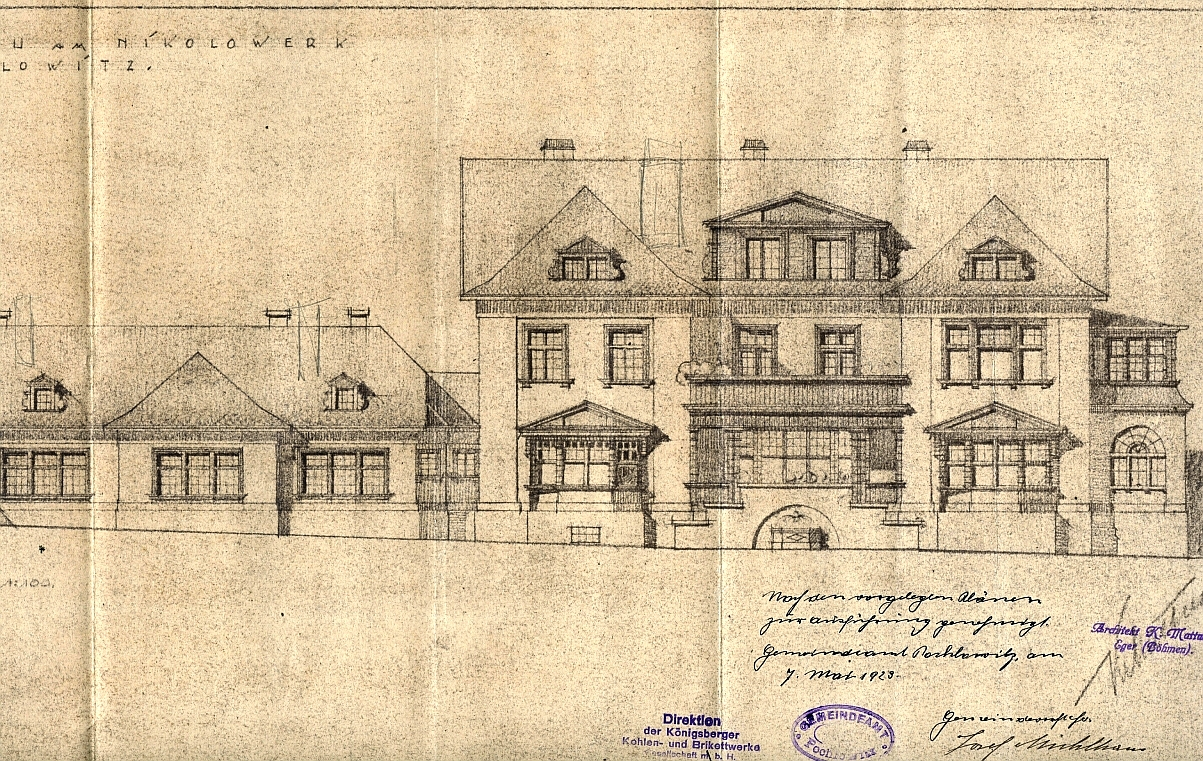 U AM NIKOLOWERK
LOWITZ.
1:100.
Nach den vorgelegten Plänen
zur Ausführung genehmigt.
Gemeindeamt Pochlowitz, am
7. Mai 1923.
Architekt K. Matu
Eger (Böhmen).
Direktion
der Königsberger
Kohlen- und Brikettwerke
Gesellschaft m. b. H.
GEMEINDEAMT
Pochlowitz
Gemeindevorsteher